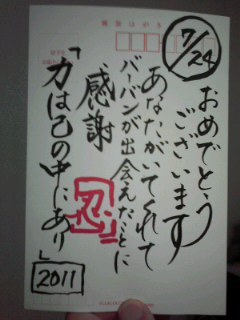 郵便はがき
7/24
おめでとう
ございます
あなたがいてくれて
バーバンが出会えたことに
感謝
忍
「力は己の中にあり」
2011